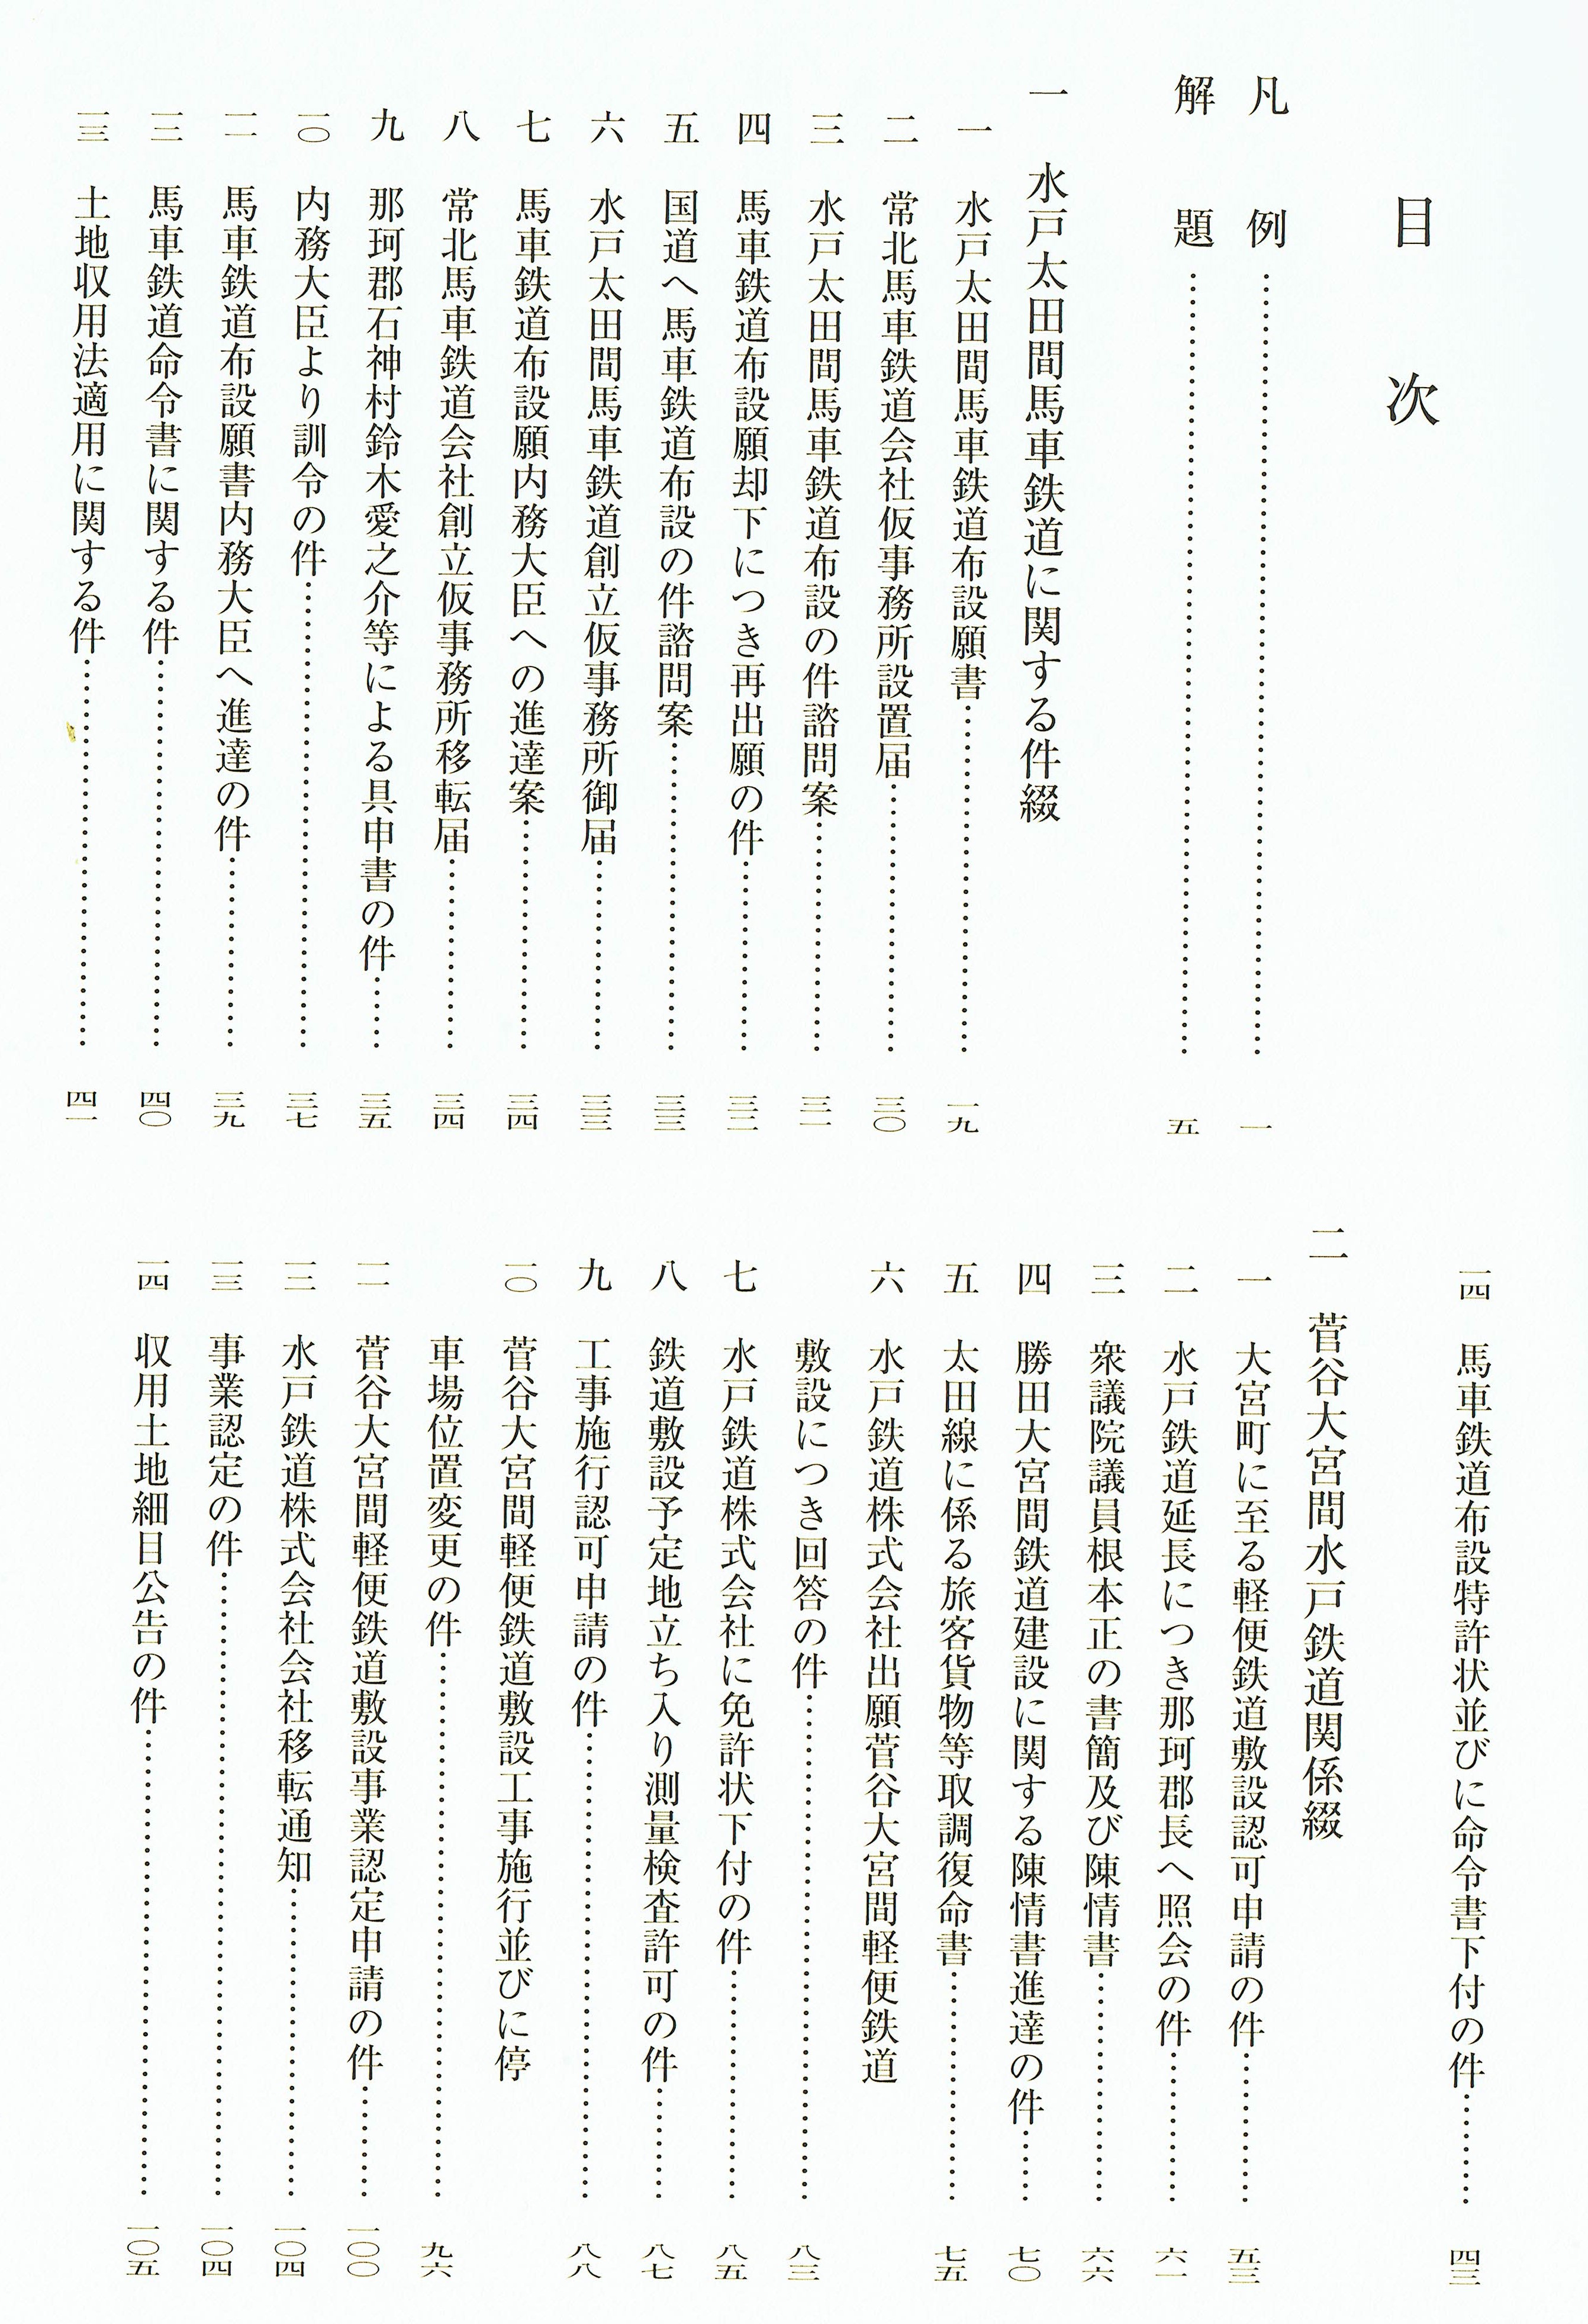 目次
凡例……一
解題……五
一 水戸太田間馬車鉄道に関する件綴
一 水戸太田間馬車鉄道布設願書……一九
二 常北馬車鉄道会社仮事務所設置届……三〇
三 水戸太田間馬車鉄道布設の件諮問案……三一
四 馬車鉄道布設願却下につき再出願の件……三二
五 国道へ馬車鉄道布設の件諮問案……三三
六 水戸太田間馬車鉄道創立仮事務所御届……三三
七 馬車鉄道布設願内務大臣への進達案……三四
八 常北馬車鉄道会社創立仮事務所移転届……三四
九 那珂郡石神村鈴木愛之介等による具申書の件……三五
一〇 内務大臣より訓令の件……三七
一一 馬車鉄道布設願書内務大臣へ進達の件……三九
一二 馬車鉄道命令書に関する件……四〇
一三 土地収用法適用に関する件……四一
一四 馬車鉄道布設特許状並びに命令書下付の件……四三
二 菅谷大宮間水戸鉄道関係綴
一 大宮町に至る軽便鉄道敷設認可申請の件……五三
二 水戸鉄道延長につき那珂郡長へ照会の件……六一
三 衆議院議員根本正の書簡及び陳情書……六六
四 勝田大宮間鉄道建設に関する陳情書進達の件……七〇
五 太田線に係る旅客貨物等取調復命書……七五
六 水戸鉄道株式会社出願菅谷大宮間軽便鉄道
敷設につき回答の件……八三
七 水戸鉄道株式会社に免許状下付の件……八五
八 鉄道敷設予定地立ち入り測量検査許可の件……八七
九 工事施行認可申請の件……八八
一〇 菅谷大宮間軽便鉄道敷設工事施行並びに停
車場位置変更の件……九六
一一 菅谷大宮間軽便鉄道敷設事業認定申請の件……一〇〇
一二 水戸鉄道株式会社会社移転通知……一〇四
一三 事業認定の件……一〇四
一四 収用土地細目公告の件……一〇五